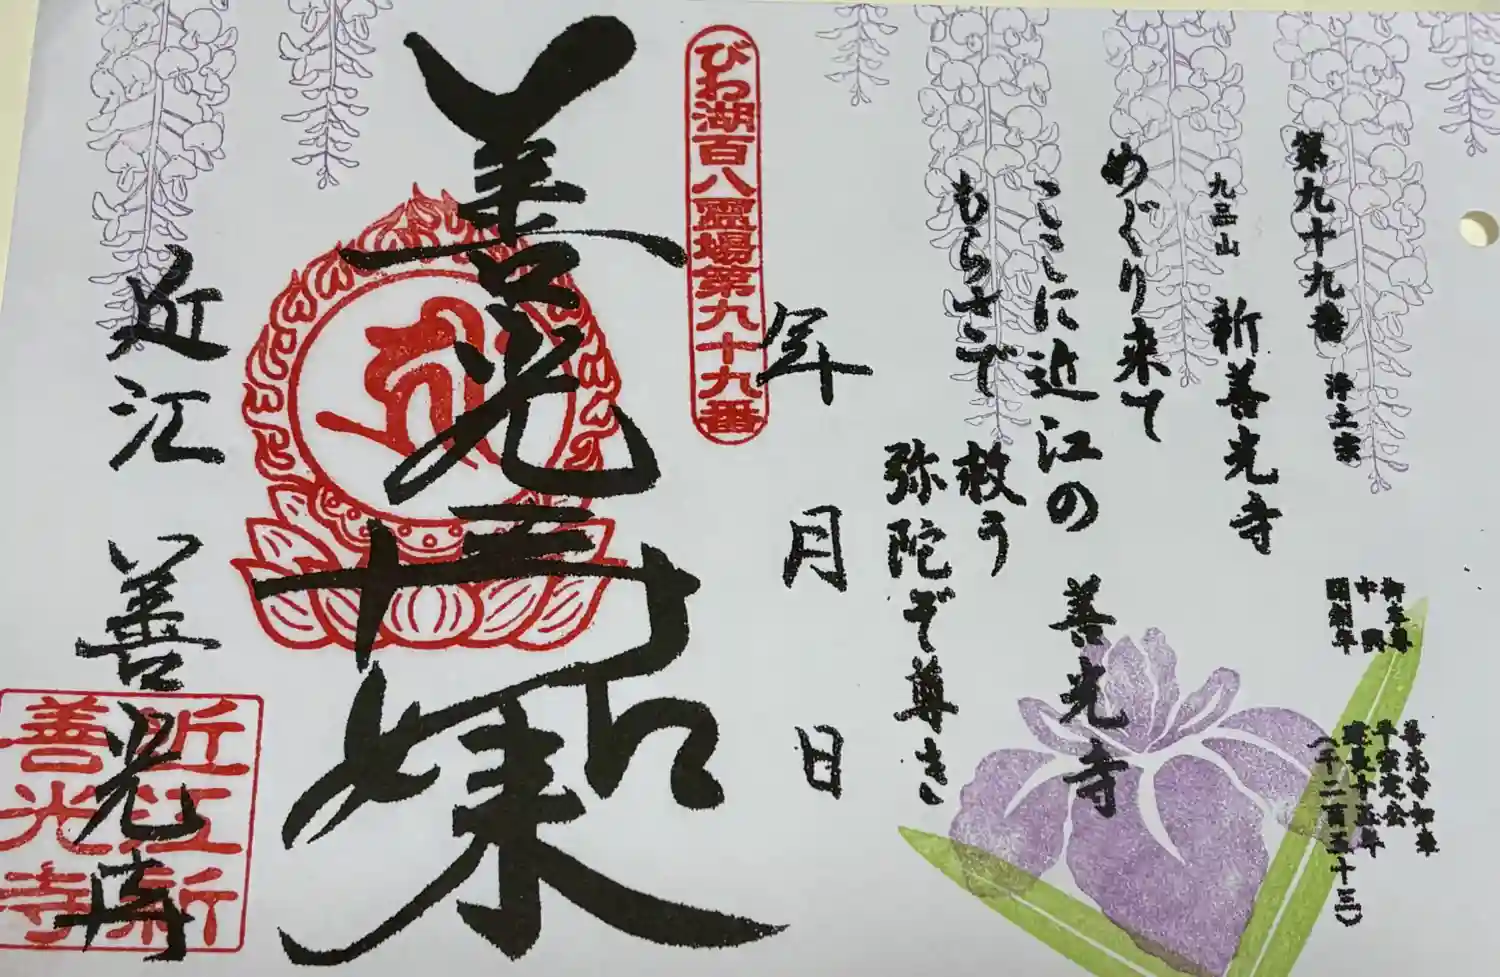 第九十九番 浄土宗
九品山 新善光寺
御本尊 善光寺如来
中興 宗定法公
開創年 建長十五年
(一千二百五十三)
めぐり来て
ここに近江の 善光寺
もらさで 救う
弥陀ぞ尊き
年 月 日
びわ湖百八霊場第九十九番
善光寺如来
近江 善光寺
近江新
善光寺